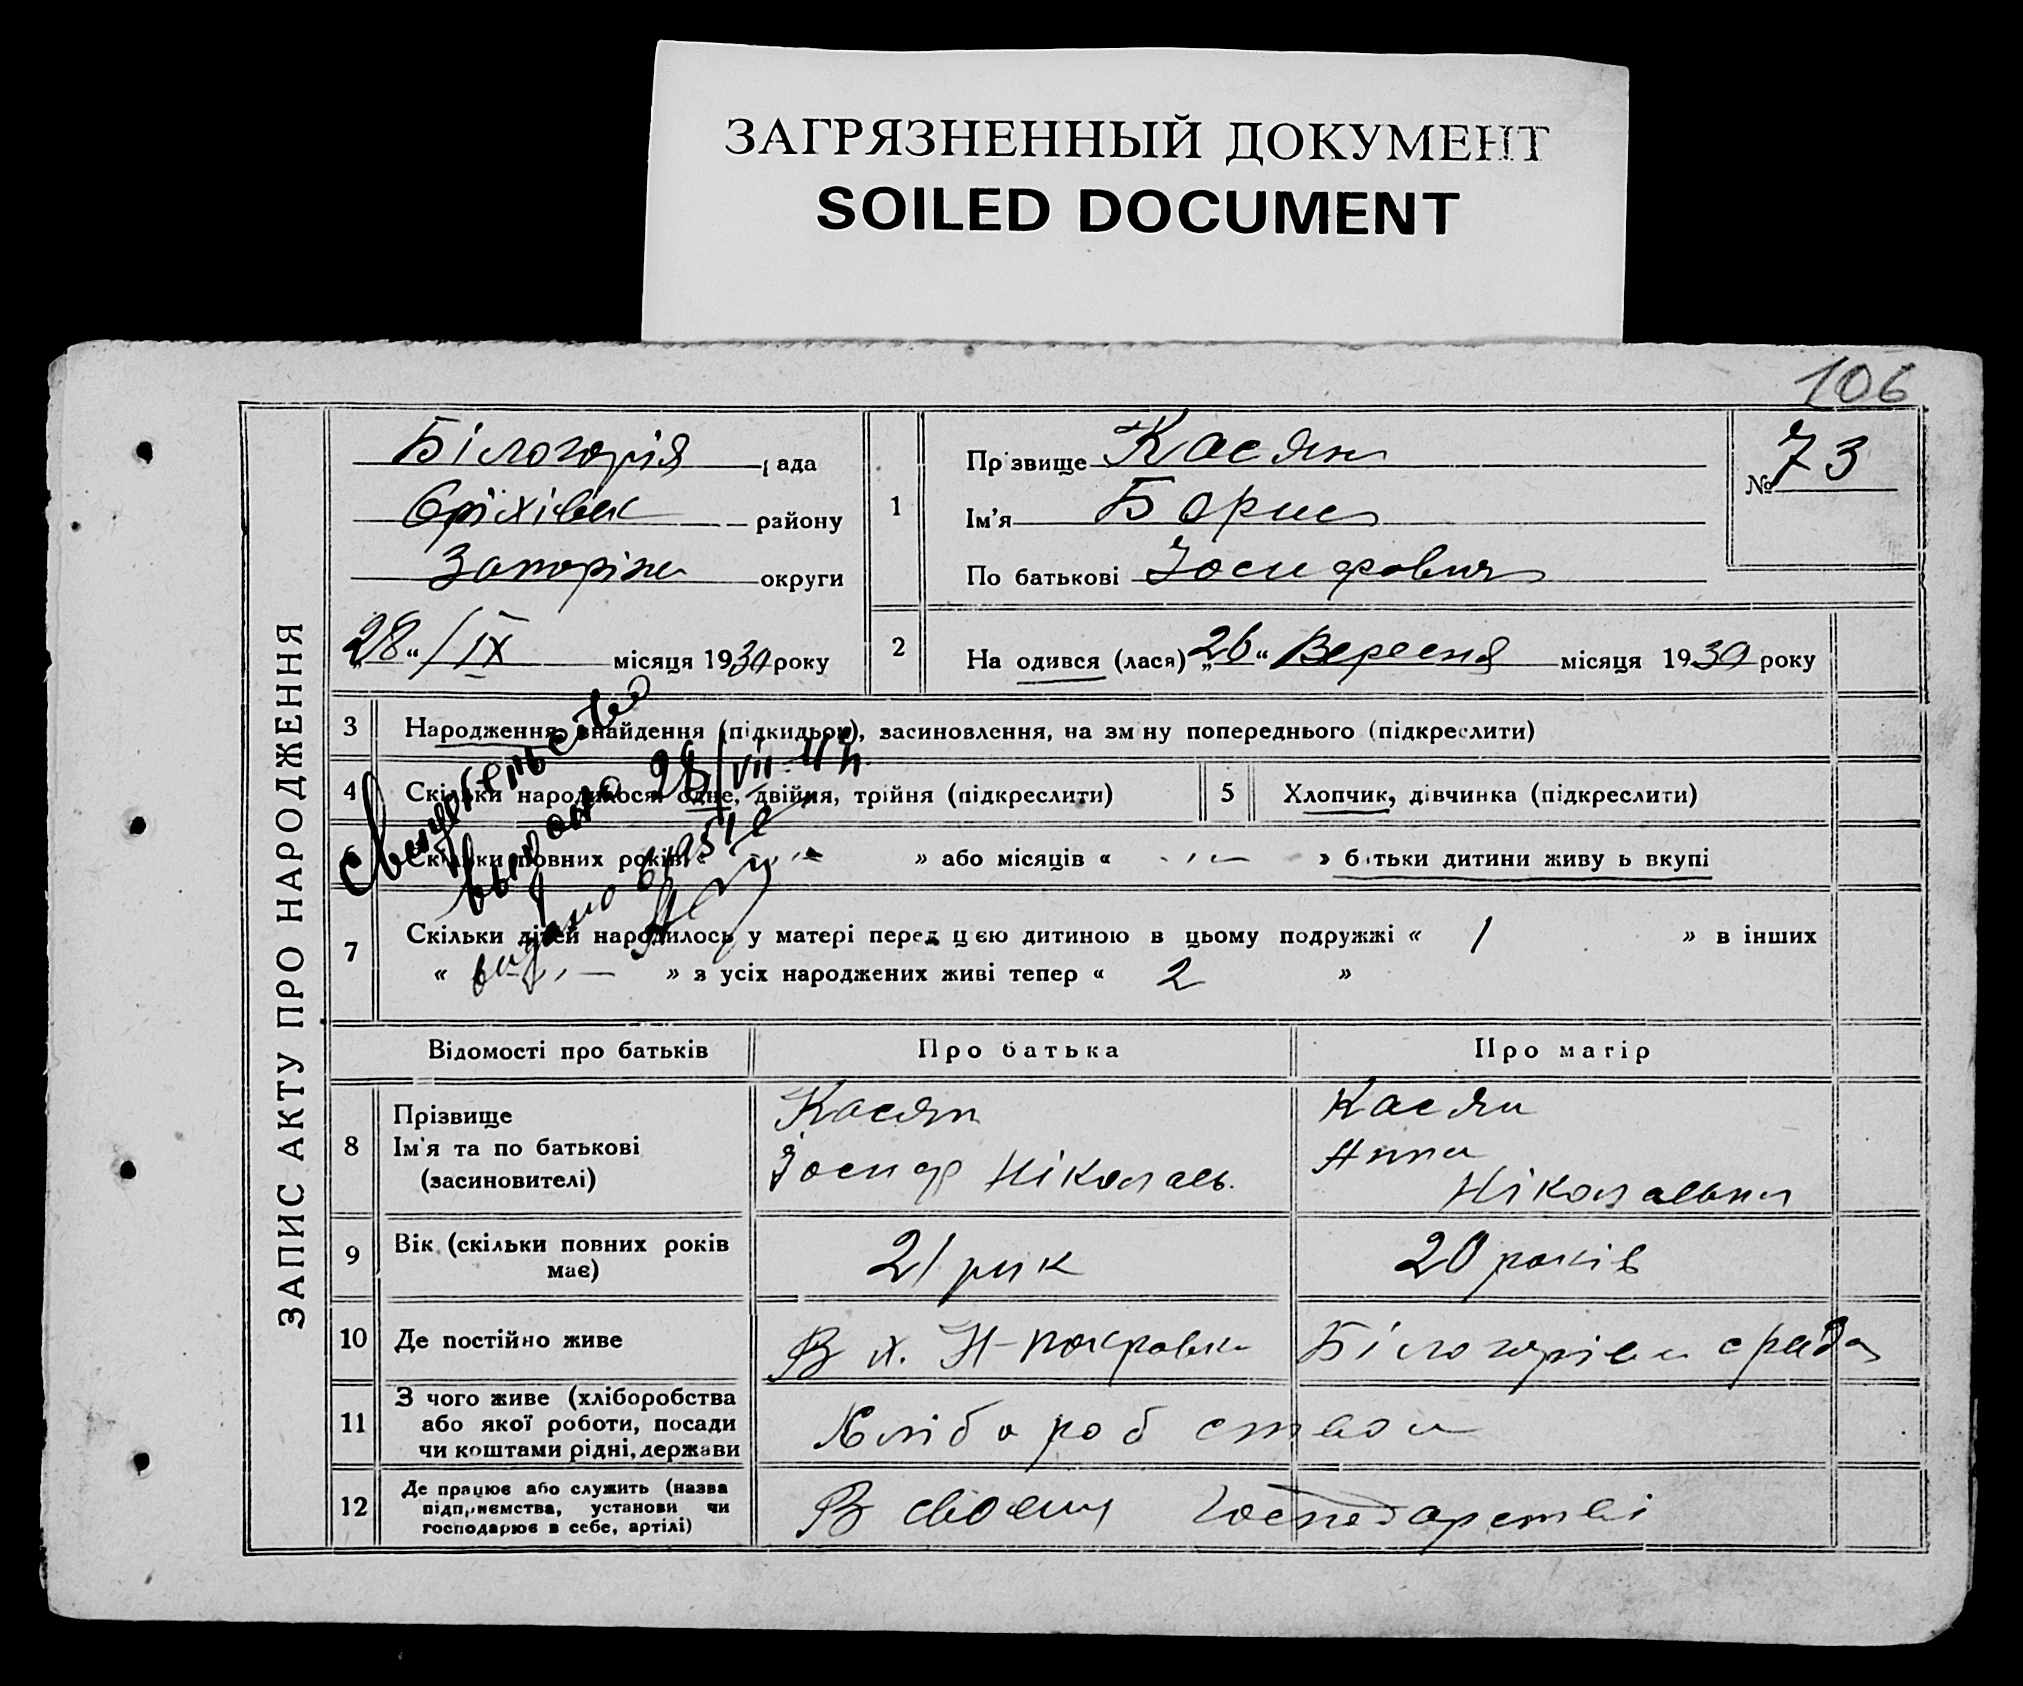 ЗАГРЯЗНЕННЫЙ ДОКУМЕНТ
SOILED DOCUMENT
106
ЗАПИС АКТУ ПРО НАРОДЖЕННЯ
Білогорія рада
Оріхівськ району
Запоріжж округи
"28" / IX місяця 1930 року
№ 73
1 Прізвище Касян
Ім'я Борис
По батькові Іосифович
2 На одився (лася) "26" Вересня місяця 1930 року
3 Народження, знайдення (підкидьок), засиновлення, на зміну попереднього (підкреслити)
4 Скільки народилося: одне, двійня, трійня (підкреслити)
5 Хлопчик, дівчинка (підкреслити)
6 Скільки повних років « — » або місяців « — » батьки дитини живуть вкупі
Свидетельство
выдано 28/VII
видано
7 Скільки дітей народилось у матері перед цією дитиною в цьому подружжі « 1 » в інших
« — » з усіх народжених живі тепер « 2 »
Відомості про батьків Про батька Про матір
8 Прізвище
Ім'я та по батькові
(засиновителі)
Касян
Іосиф Ніколаєв.
Касян
Анна
Ніколаєвна
9 Вік (скільки повних років
має)
21 рик
20 років
10 Де постійно живе В х. Н-Покровка Білогорівск с/рада
11 З чого живе (хліборобства
або якої роботи, посади
чи коштами рідні, держави
Хліборобством
12 Де працює або служить (назва
підприємства, установи чи
господарює в себе, артілі)
В своєму господарстві